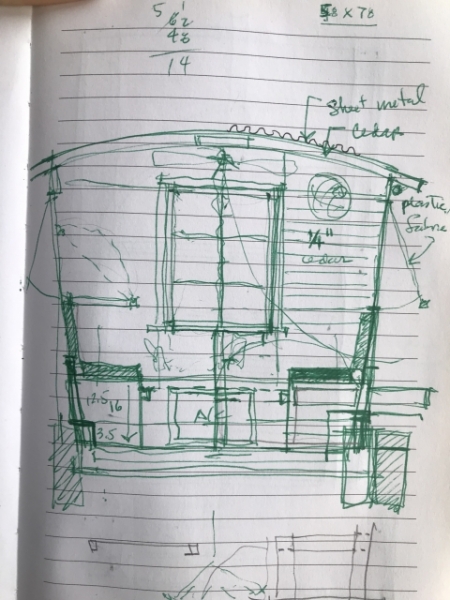 5 1
62
48
14
58 x 78
Sheet metal
Cedar
plastic
fabric
1/4"
cedar
12.5
16
3.5
A/C